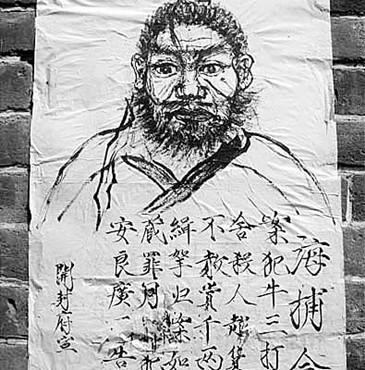 海捕令
案犯牛三打
舍殺人越貨
不赦賞千两
緝拏归除如
藏罪同犯
安良廣告
開封府宣